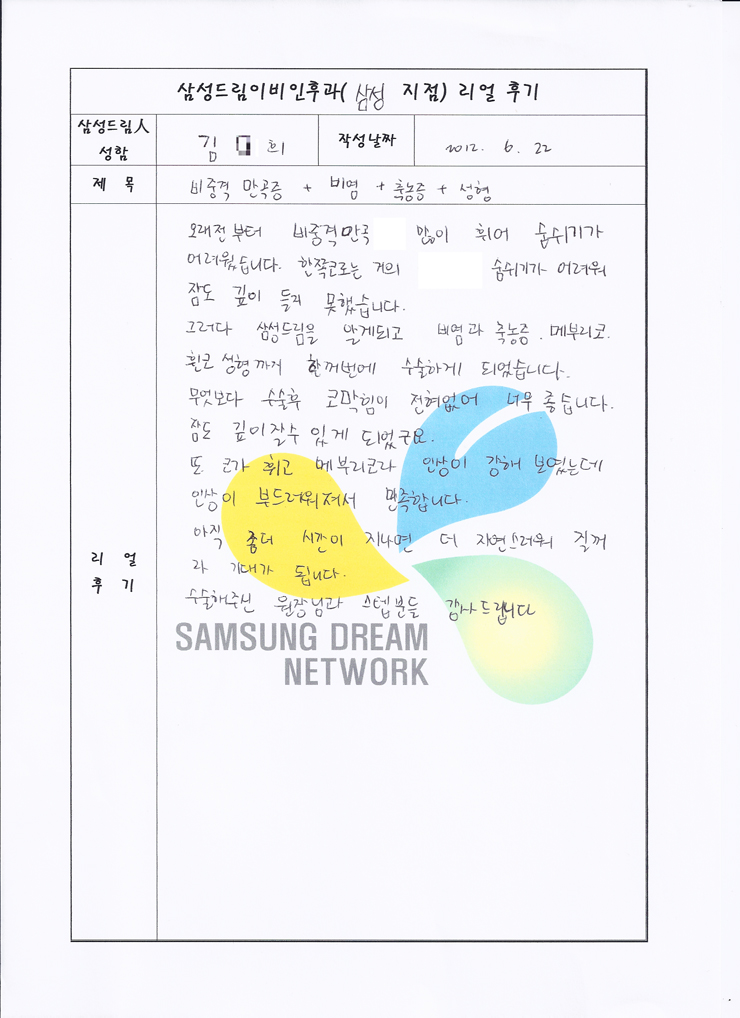 삼성드림이비인후과(삼성 지점) 리얼 후기
삼성드림人 성함
김 희
작성날짜
2012. 6. 22
제 목
비중격 만곡증 + 비염 + 축농증 + 성형
리 얼
후 기
오래전부터 비중격만곡 많이 휘어 숨쉬기가
어려웠습니다. 한쪽코로는 거의 숨쉬기가 어려워
잠도 깊이 들지 못했습니다.
그러다 삼성드림을 알게되고 비염과 축농증. 메부리코.
휜코 성형까지 한꺼번에 수술하게 되었습니다.
무엇보다 수술후 코막힘이 전혀없어 너무 좋습니다.
잠도 깊이잘수 있게 되었구요.
또 코가 휘고 메부리코라 인상이 강해 보였는데
인상이 부드러워져서 만족합니다.
아직 좀더 시간이 지나면 더 자연스러워 질꺼
라 기대가 됩니다.
수술해주신 원장님과 스텝분들 감사드립니다
SAMSUNG DREAM
NETWORK